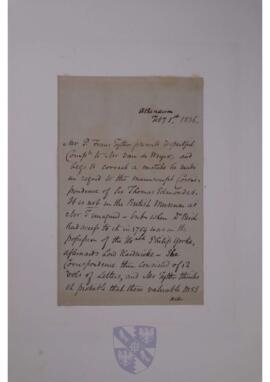 Athenaeum
Feby 1st 1836.
Mr P. Fraser Tytler presents respectful
Compts to Mr Van de Weyer, and
begs to correct a mistake he made
in regard to the manuscript Corres-
pondence of Sir Thomas Edmondes.
It is not in the British Museum as
Mr T imagined – but when Dr Birch
had access to it in 1749 was in the
possession of the Honble Philip Yorke,
afterwards Lord Hardwicke – The
Correspondence then consisted of 12
vols of Letters, and Mr Tytler thinks
it probable that these valuable MSS